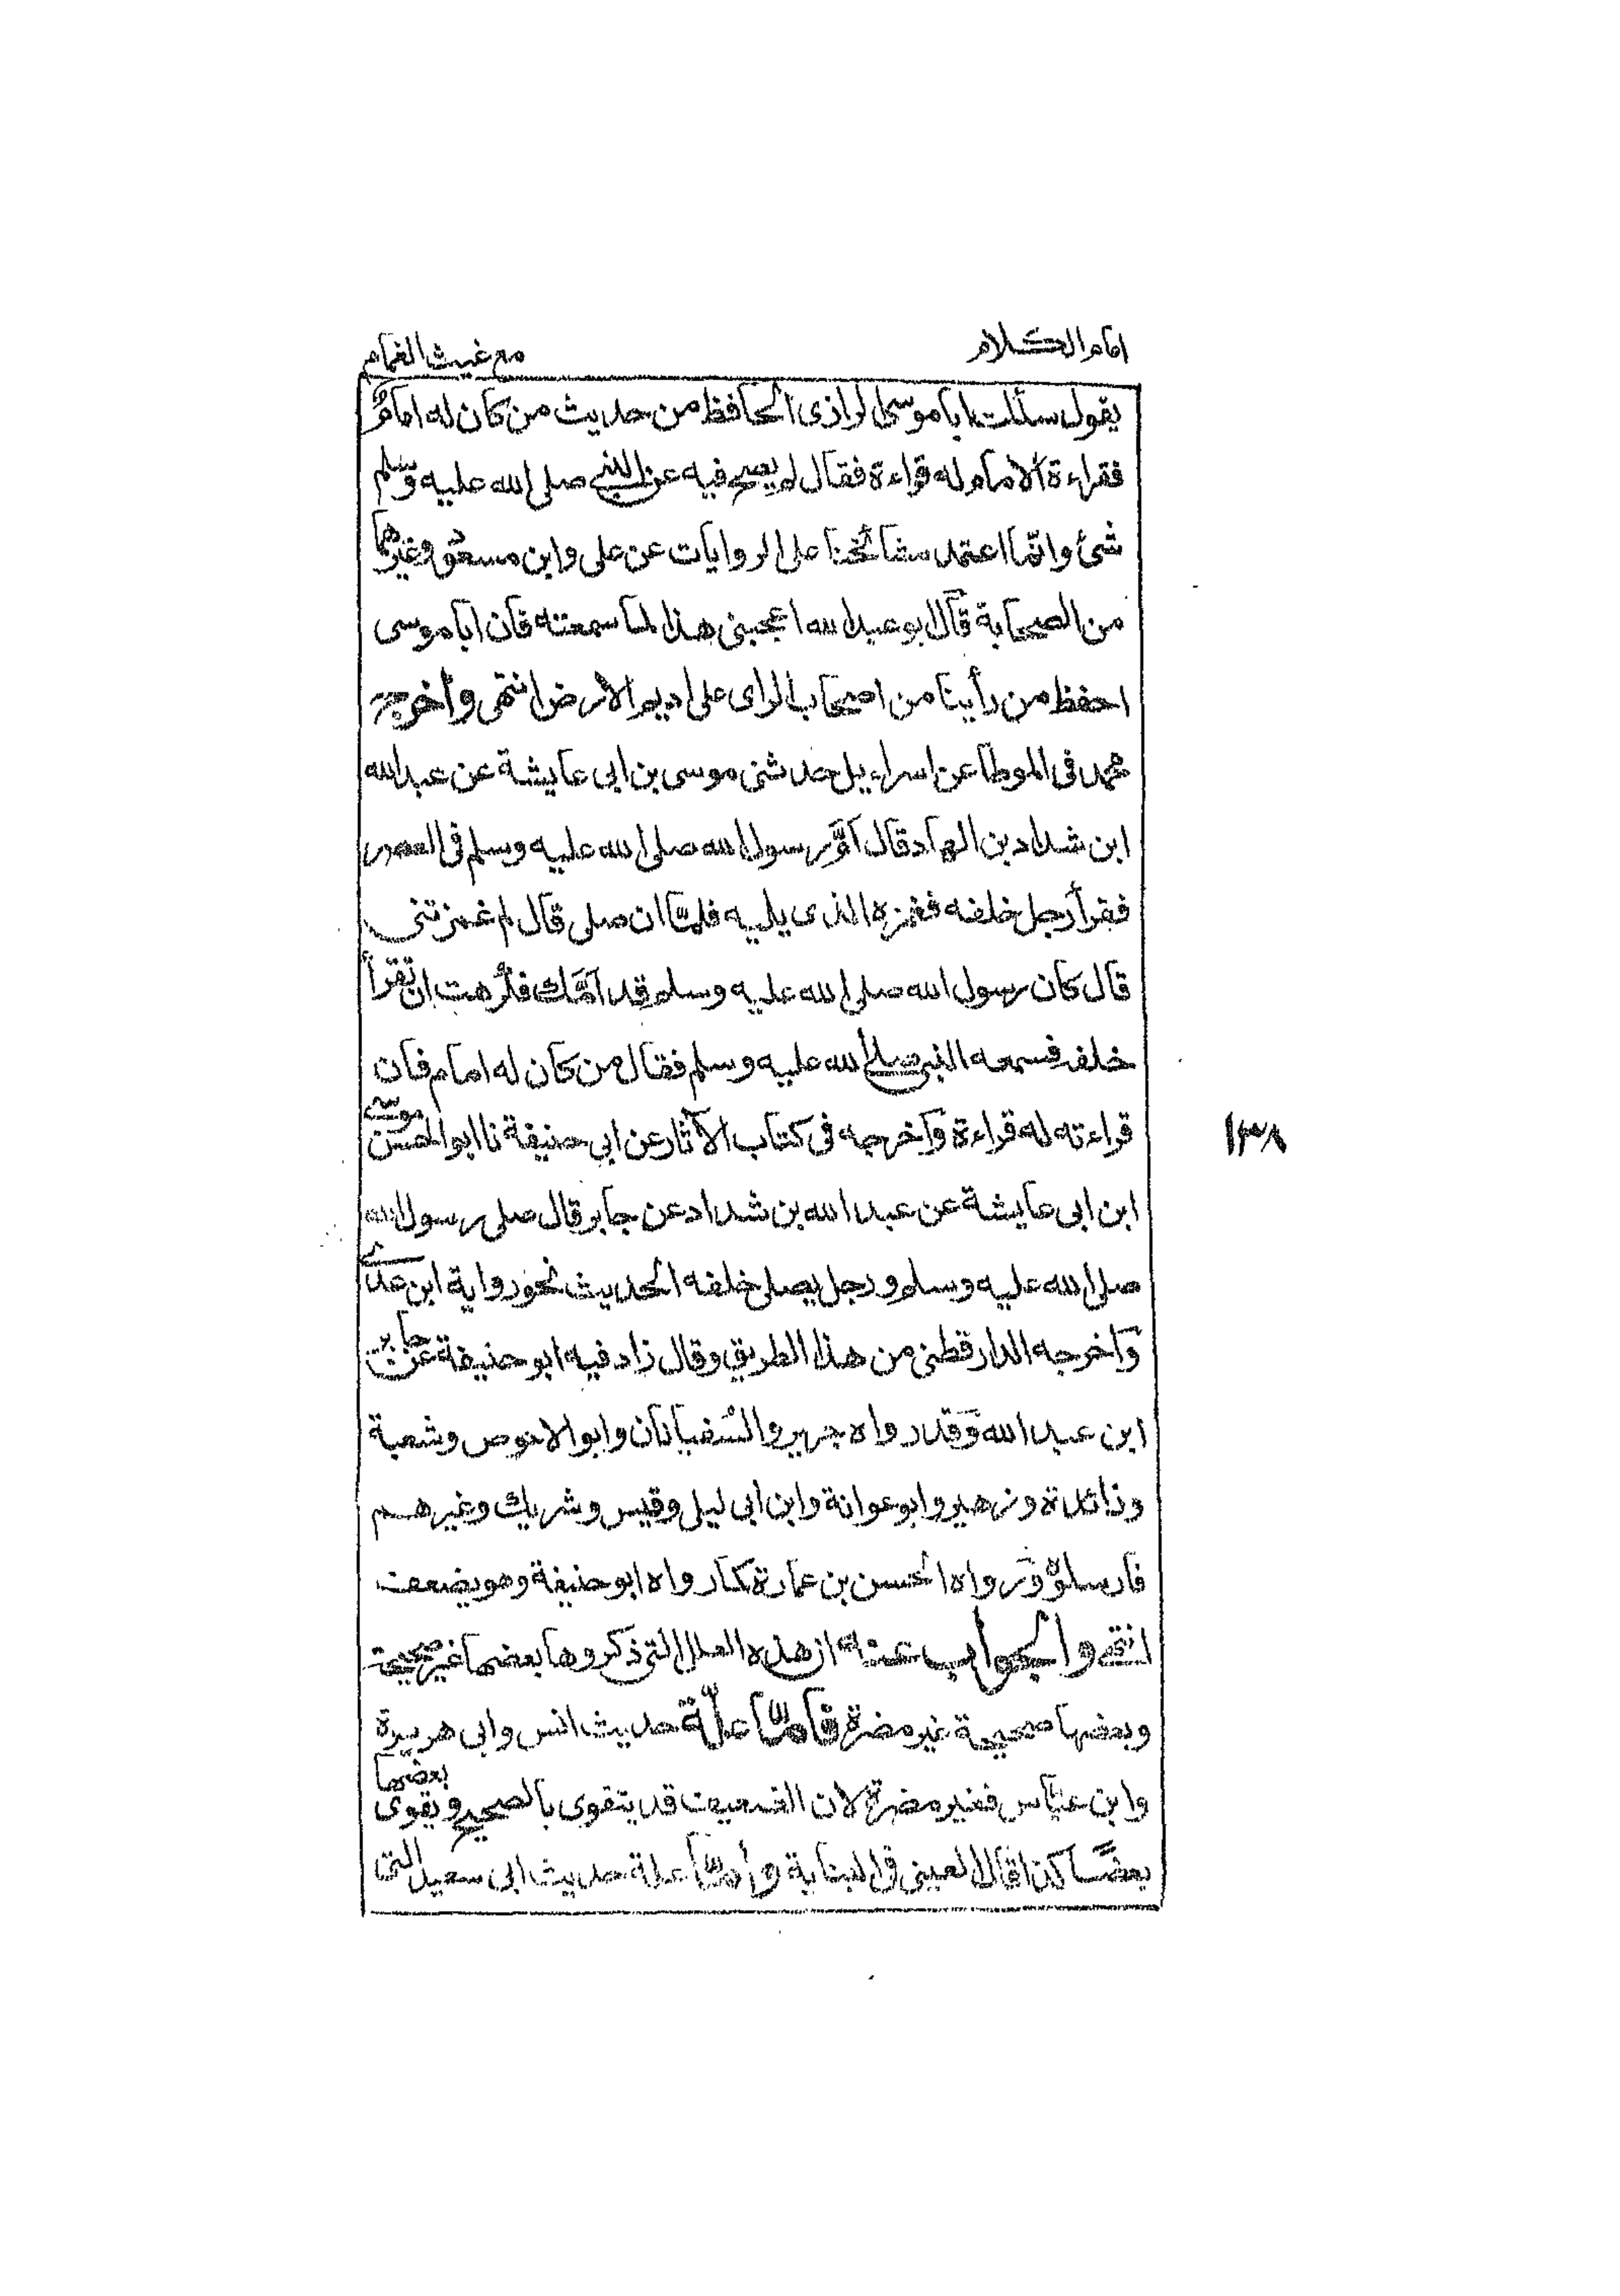 امام الكلام
مع غيث الغمام
يقول سئلت ابا موسى الرازى الحافظ من حديث من كان له امام
فقراءة الامام له قراءة فقال لم يصح فيه عن النبي صلى الله عليه وسلم
شئ وانما اعتمد مشائخنا على الروايات عن على وابن مسعود وغيرهما
من الصحابة قال ابو عبد الله اعجبنى هذا لما سمعته فان ابا موسى
احفظ من رأينا من اصحاب الراى على اديم الارض انتهى واخرجه
محمد فى الموطا عن اسراءيل حدثنى موسى بن ابى عايشة عن عبد الله
ابن شداد بن الهاد قال امّ رسول الله صلى الله عليه وسلم فى العصر
فقرأ رجل خلفه فغمزه الذى يليه فلمّا ان صلى قال لم غمزتنى
قال كان رسول الله صلى الله عليه وسلم قد امّك فكرهت ان تقرأ
خلفه فسمعه النبي صلى الله عليه وسلم فقال من كان له امام فان
قراءته له قراءة واخرجه فى كتاب الآثار عن ابى حنيفة نا ابو الحسن موسى
ابن ابى عايشة عن عبد الله بن شداد عن جابر قال صلى رسول الله
صلى الله عليه وسلم ورجل يصلى خلفه الحديث نحو رواية ابن عدى
واخرجه الدارقطنى من هذا الطريق وقال زاد فيه ابو حنيفة عن جابر
ابن عبد الله وقد رواه جرير والسفيانان وابو الاحوص وشعبة
وزائدة وزهير وابو عوانة وابن ابى ليلى وقيس وشريك وغيرهم
فارسلوه ورواه الحسن بن عمارة كما رواه ابو حنيفة وهو يضعف
انتهى والجواب عنه ان هذه العلل التى ذكروها بعضها غير صحيحة
وبعضها صحيحة غير مضرة فامّا علّة حديث انس وابى هريرة
وابن عباس فغير مضرة لان الضعيف قد يتقوى بالصحيح ويقوى بعضها
بعضا كذا قال العينى فى البناية وامّا علة حديث ابى سعيد التى
١٣٨